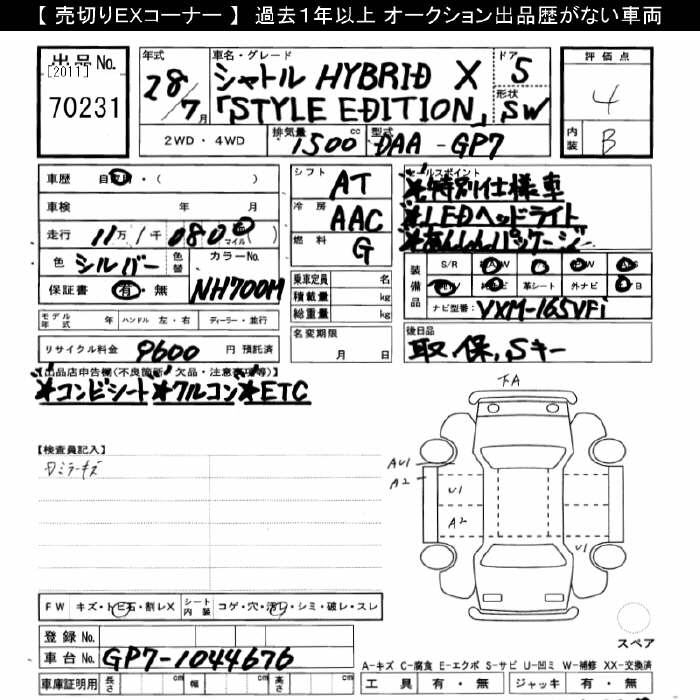 【 売切りEXコーナー 】 過去1年以上 オークション出品歴がない車両
出品No.
[2011]
70231
年式
28/7月
車名・グレード
シャトル HYBRID X
「STYLE EDITION」
ドア
5
形状
SW
評価点
4
内装
B
2WD・4WD
排気量
1500cc
型式
DAA-GP7
車歴
車検 年 月
走行 11万1千080 マイル( )
色 シルバー
色替
カラーNo.
NH700M
保証書 有・無
シフト AT
冷房 AAC
燃料 G
乗車定員 名
積載量 kg
総重量 kg
セールスポイント
*特別仕様車
*LEDヘッドライト
*あんしんパッケージ
装備品
S/R
革シート 外ナビ
ナビ型番( VXM-165VFi
モデル年式 年 ハンドル 左・右 ディーラー・並行
リサイクル料金 9600 円 預託済
名変期限
月 日
後日品
取、保、Sキー
【出品店申告欄(不良箇所・欠品・注意事項等)】
*コンビシート*クルコン*ETC
【検査員記入】
ミラーキズ
下A
AU1
A2
U1
A2
U1
FW キズ・トビ石・割レX
シート内装 コゲ・穴・汚レ・シミ・破レ・スレ
登録No.
車台No. GP7-1044676
車庫証明用 長さ cm 幅 cm 高さ cm
スペア
A-キズ C-腐食 E-エクボ S-サビ U-凹ミ W-補修 XX-交換済
工具 有・無 ジャッキ 有・無